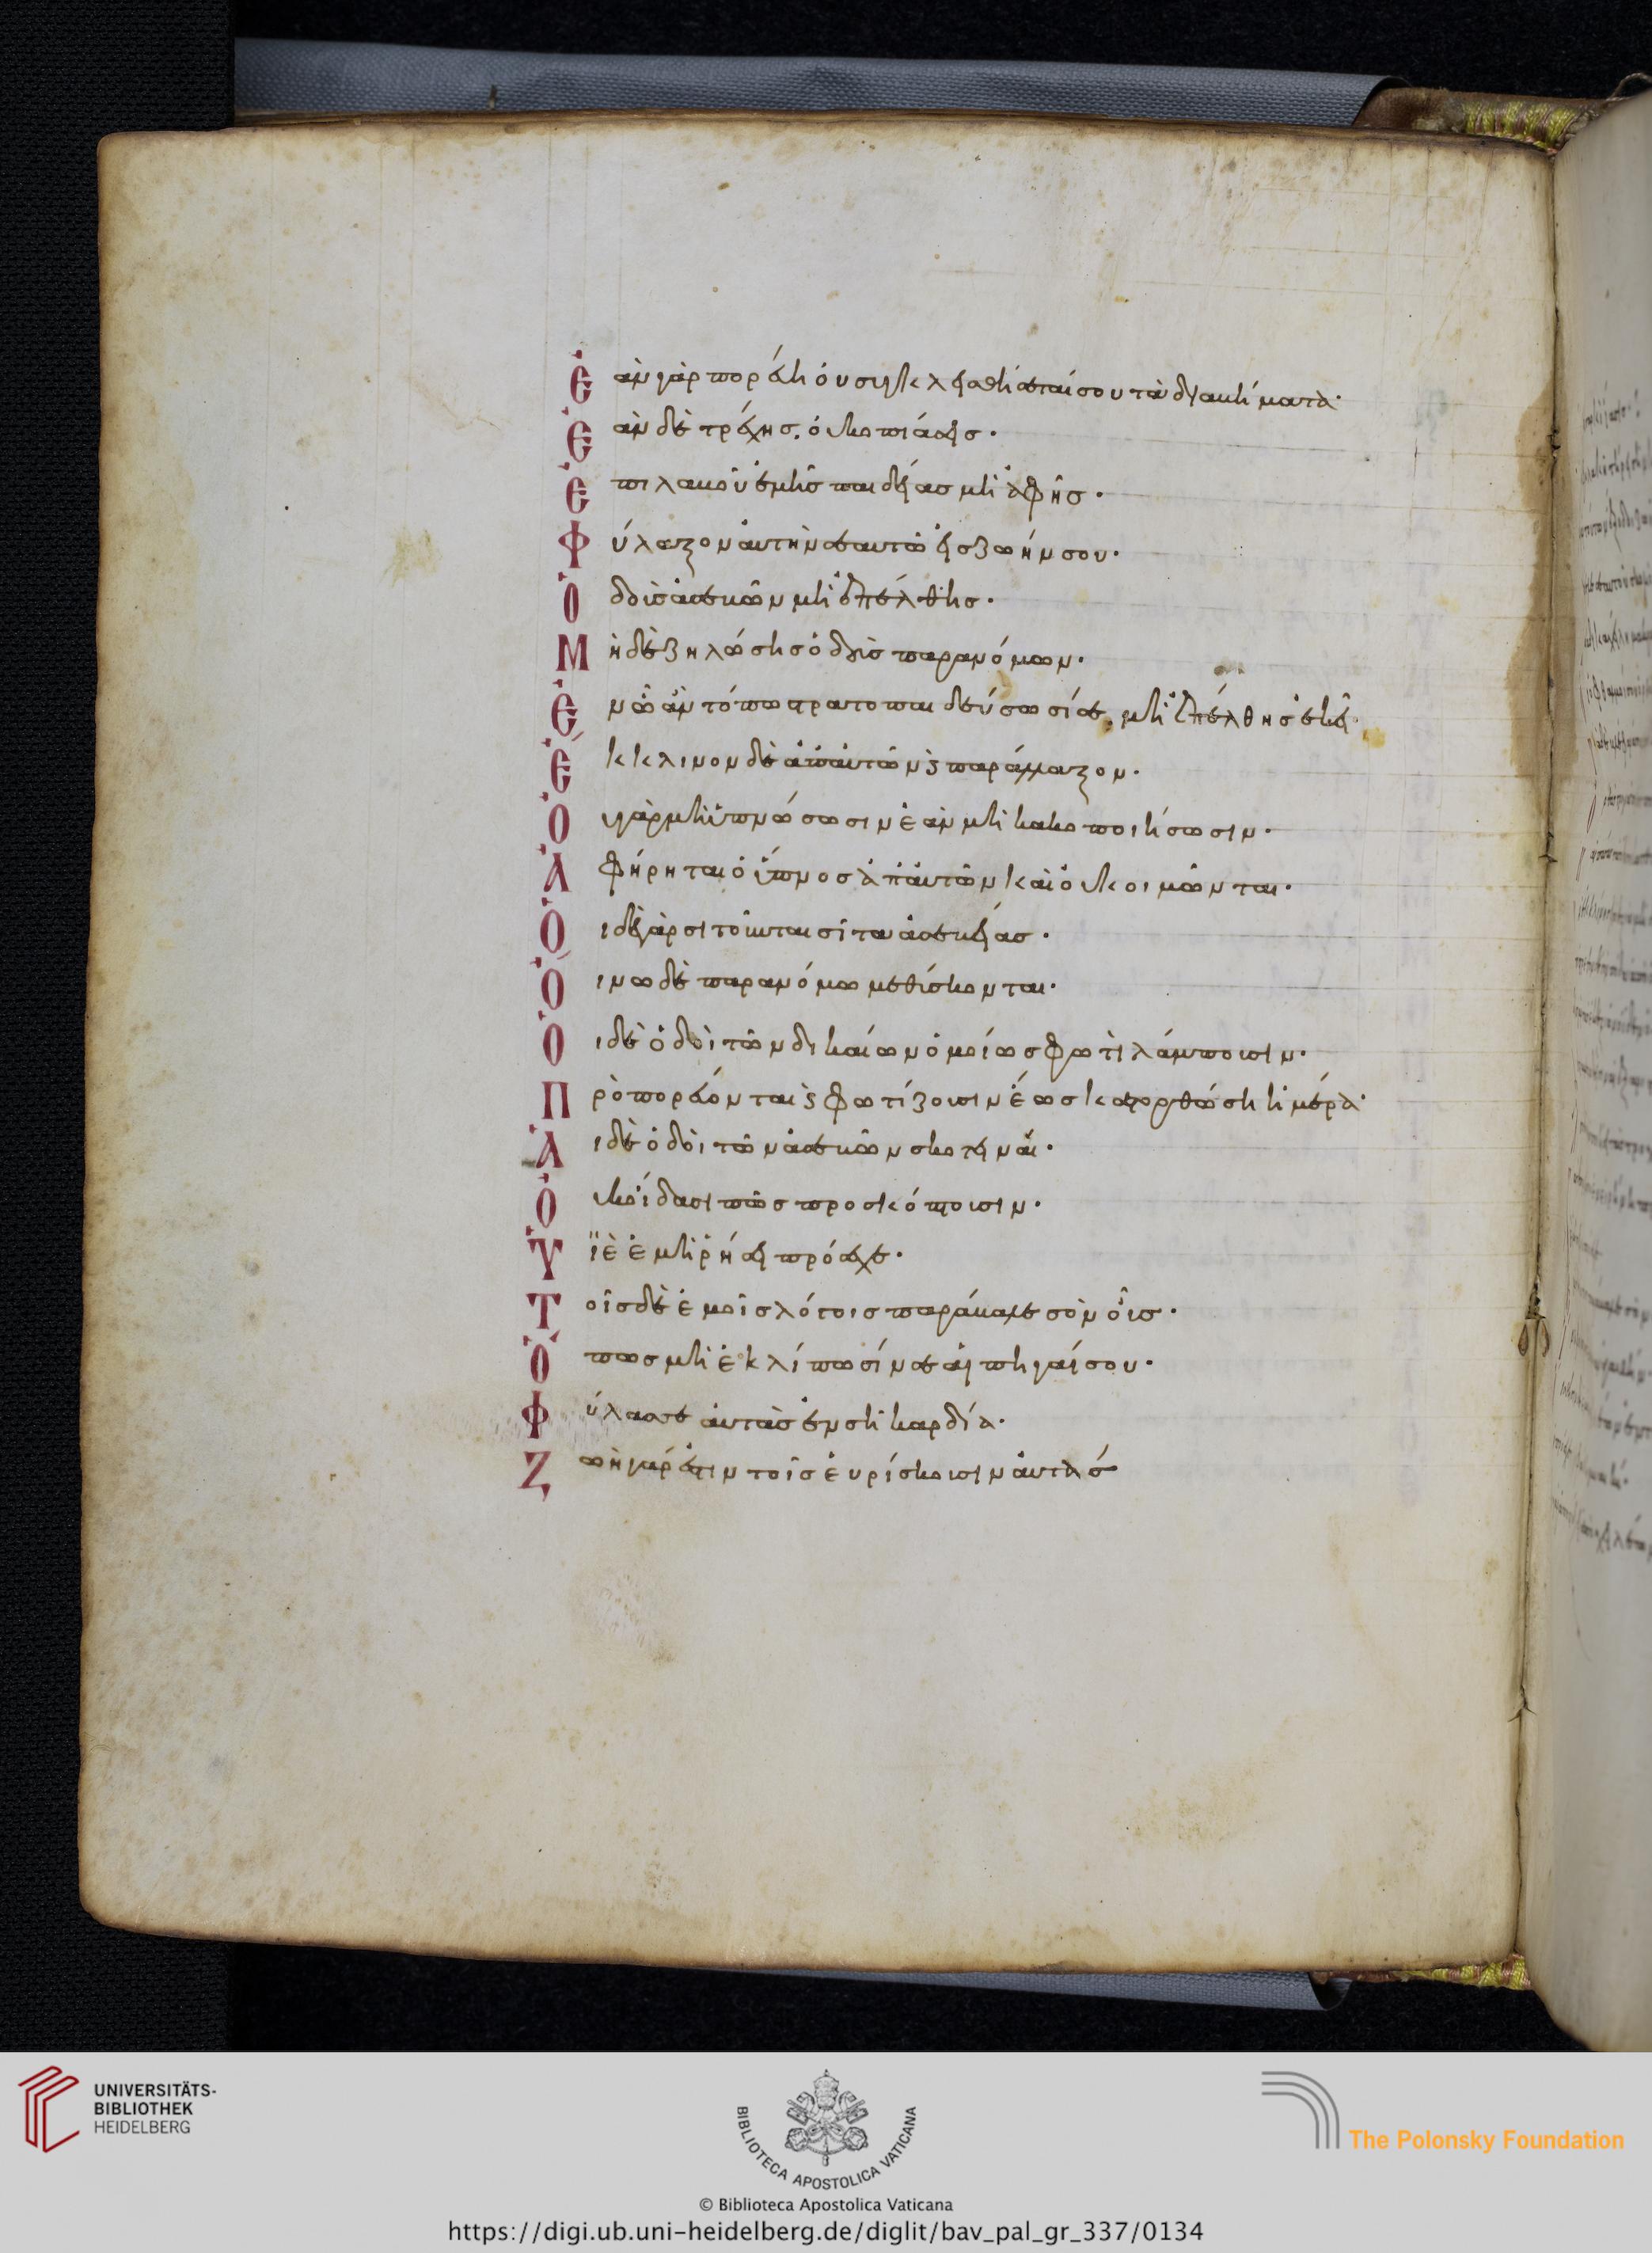 Ἐὰν γὰρ πορεύη οὐ συγκλεισθήσεταί σου τὰ διαβήματα·
Ἐὰν δὲ τρέχης. οὐ κοπιάσεις·
Ἐπιλαβοῦ ἐμῆς παιδείας μὴ ἀφῆς·
Φύλαξον αὐτὴν σεαυτῶ εἰς ζωήν σου·
Ὁδοὺς ἀσεβῶν μὴ ἐπέλθης·
Μηδὲ ζηλώσης ὁδοὺς παρανόμων·
Ἐν ὧ ἂν τόπω στρατοπαιδεύσωσίαι, μὴ ἐπέλθης ἐκεῖ·
Ἔκκλινον δὲ ἀπ' αὐτῶν ϗ παράλλαξον·
Οὐ γὰρ μὴ ὑπνώσωσιν ἐὰν μὴ κακοποιήσωσιν·
Ἀφήρηται ὁ ὕπνος ἀπ' αὐτῶν καὶ οὐ κοιμῶνται·
Οἵδε γὰρ σιτοῦνται σῖτα ἀσεβείας·
Οἴνω δὲ παρανόμω μεθύσκονται·
Ὁι δὲ ὁδοὶ τῶν δικαίων ὁμοίως φωτὶ λάμπουσιν·
Προπορεύονται ϗ φωτίζουσιν ἕως κατορθώση ἡ μέρα·
Αἱ δὲ ὁδοὶ τῶν ἀσεβῶν σκοτειναί·
Οὐκ οἴδασι πῶς προσκόπτουσιν·
Υἱὲ ἐμῆ ῥήσει πρόσεχε·
Τοῖς δὲ ἐμοῖς λόγοις παράβαλε σὸν οὖς·
Ὅπως μὴ ἐκλίπωσίν σε αἱ πηγαί σου·
Φύλασσε αὐτὰς ἐν σῆ καρδία·
Ζωὴ γάρ ἐστιν τοῖς εὑρίσκουσιν αὐτάς
UNIVERSITÄTS-
BIBLIOTHEK
HEIDELBERG
BIBLIOTECA APOSTOLICA VATICANA
The Polonsky Foundation
© Biblioteca Apostolica Vaticana
https://digi.ub.uni-heidelberg.de/diglit/bav_pal_gr_337/0134